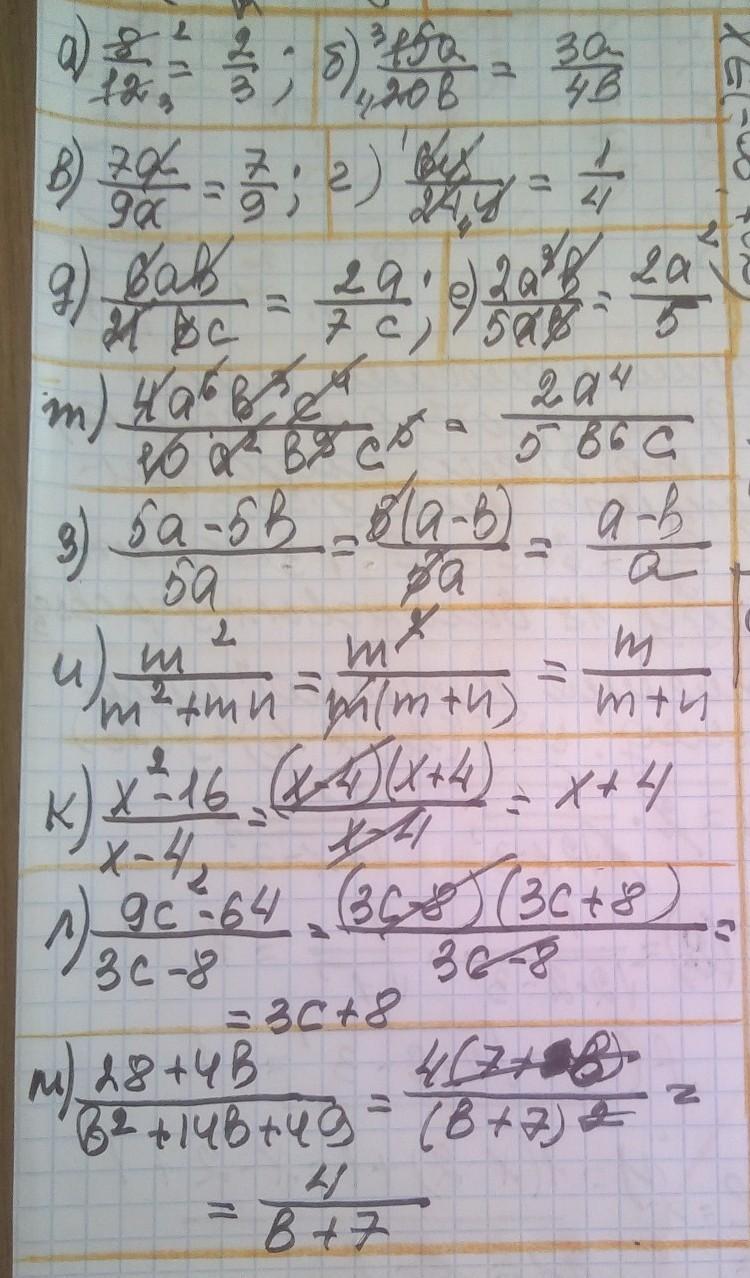 а) 8/12 = 2/3; б) 15a/20b = 3a/4b
в) 7a/9a = 7/9; г) 6y/24y = 1/4
д) 6ab/21bc = 2a/7c; е) 2a³b/5ab = 2a²/5
ж) 4a⁶b³c⁴/10a²b⁹c⁵ = 2a⁴/5b⁶c
з) (5a-5b)/5a = 5(a-b)/5a = (a-b)/a
и) m²/(m²+mn) = m²/m(m+n) = m/(m+n)
к) (x²-16)/(x-4) = (x-4)(x+4)/(x-4) = x+4
л) (9c²-64)/(3c-8) = (3c-8)(3c+8)/(3c-8) =
= 3c+8
м) (28+4b)/(b²+14b+49) = 4(7+b)/(b+7)² =
= 4/(b+7)